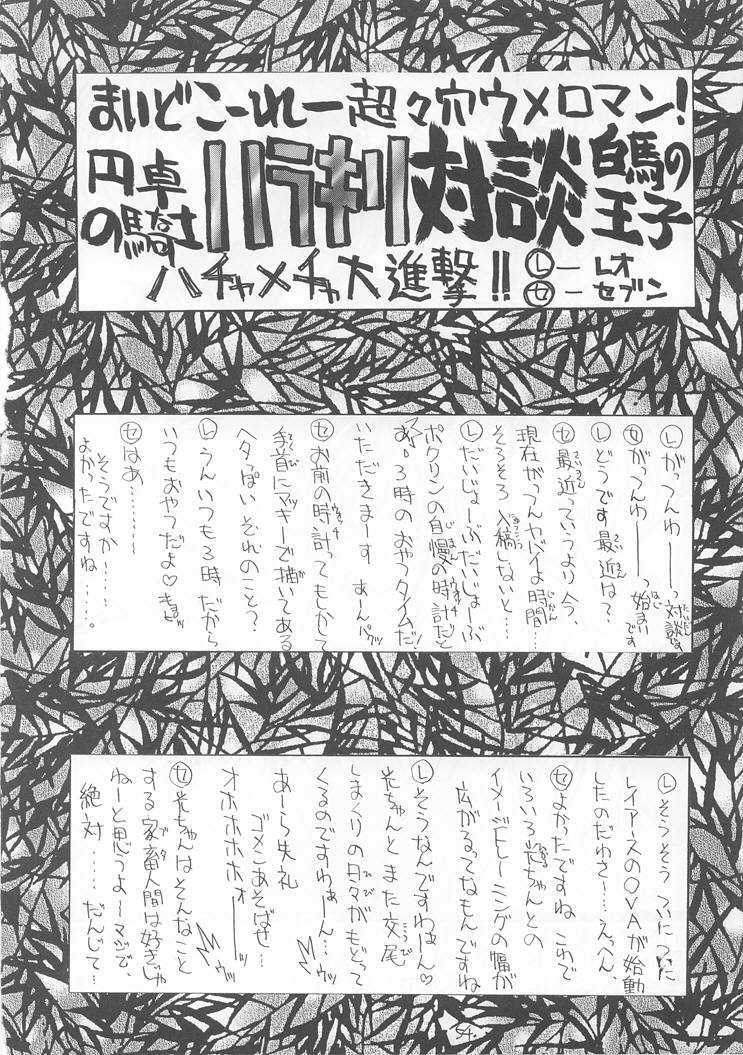 まいどこーれー超々穴ウメロマン!
円卓の騎士 ハラキリ対談 白馬の王子
ハチャメチャ大進撃!!
Ⓛ― レオ
㋝― セブン
Ⓛがっつんわ――っ対談は
㋝がっつんわ――っ始まいです
Ⓛどうです最近は?
㋝最近っていうより今、
現在がっつんヤバイよ時間…
そろそろ入稿しないと…
Ⓛだいじょーぶだいじょーぶ
ポクリンの自慢の時計だと
あ、3時のおやつタイムだ!
いただきまーす あーんパクッ
㋝お前の時計ってもしかして
手首にマッキーで描いてある
ヘタっぽい それのこと?
Ⓛうんいつも3時だから
いつもおやつだよ♡
㋝はあ………
そうですか……
よかったですね
……。
Ⓛそうそう ついについに
レイアースのOVAが始動
したのだわさ!…えっへん
㋝よかったですね これで
いろいろ光ちゃんとの
イメージトレーニングの幅が
広がるってなもんですね
Ⓛそうなんですわはーん♡
光ちゃんとまた交尾
しまくりの日々がもどって
くるのですわぁーん…ウッ
あーら失礼
ゴメンあそばせ…
オホホホホォ――ウッ
㋝光ちゃんはそんなこと
する家畜人間は好きじゃ
ねーと思うよーマジで、
絶対……だんじて…
54